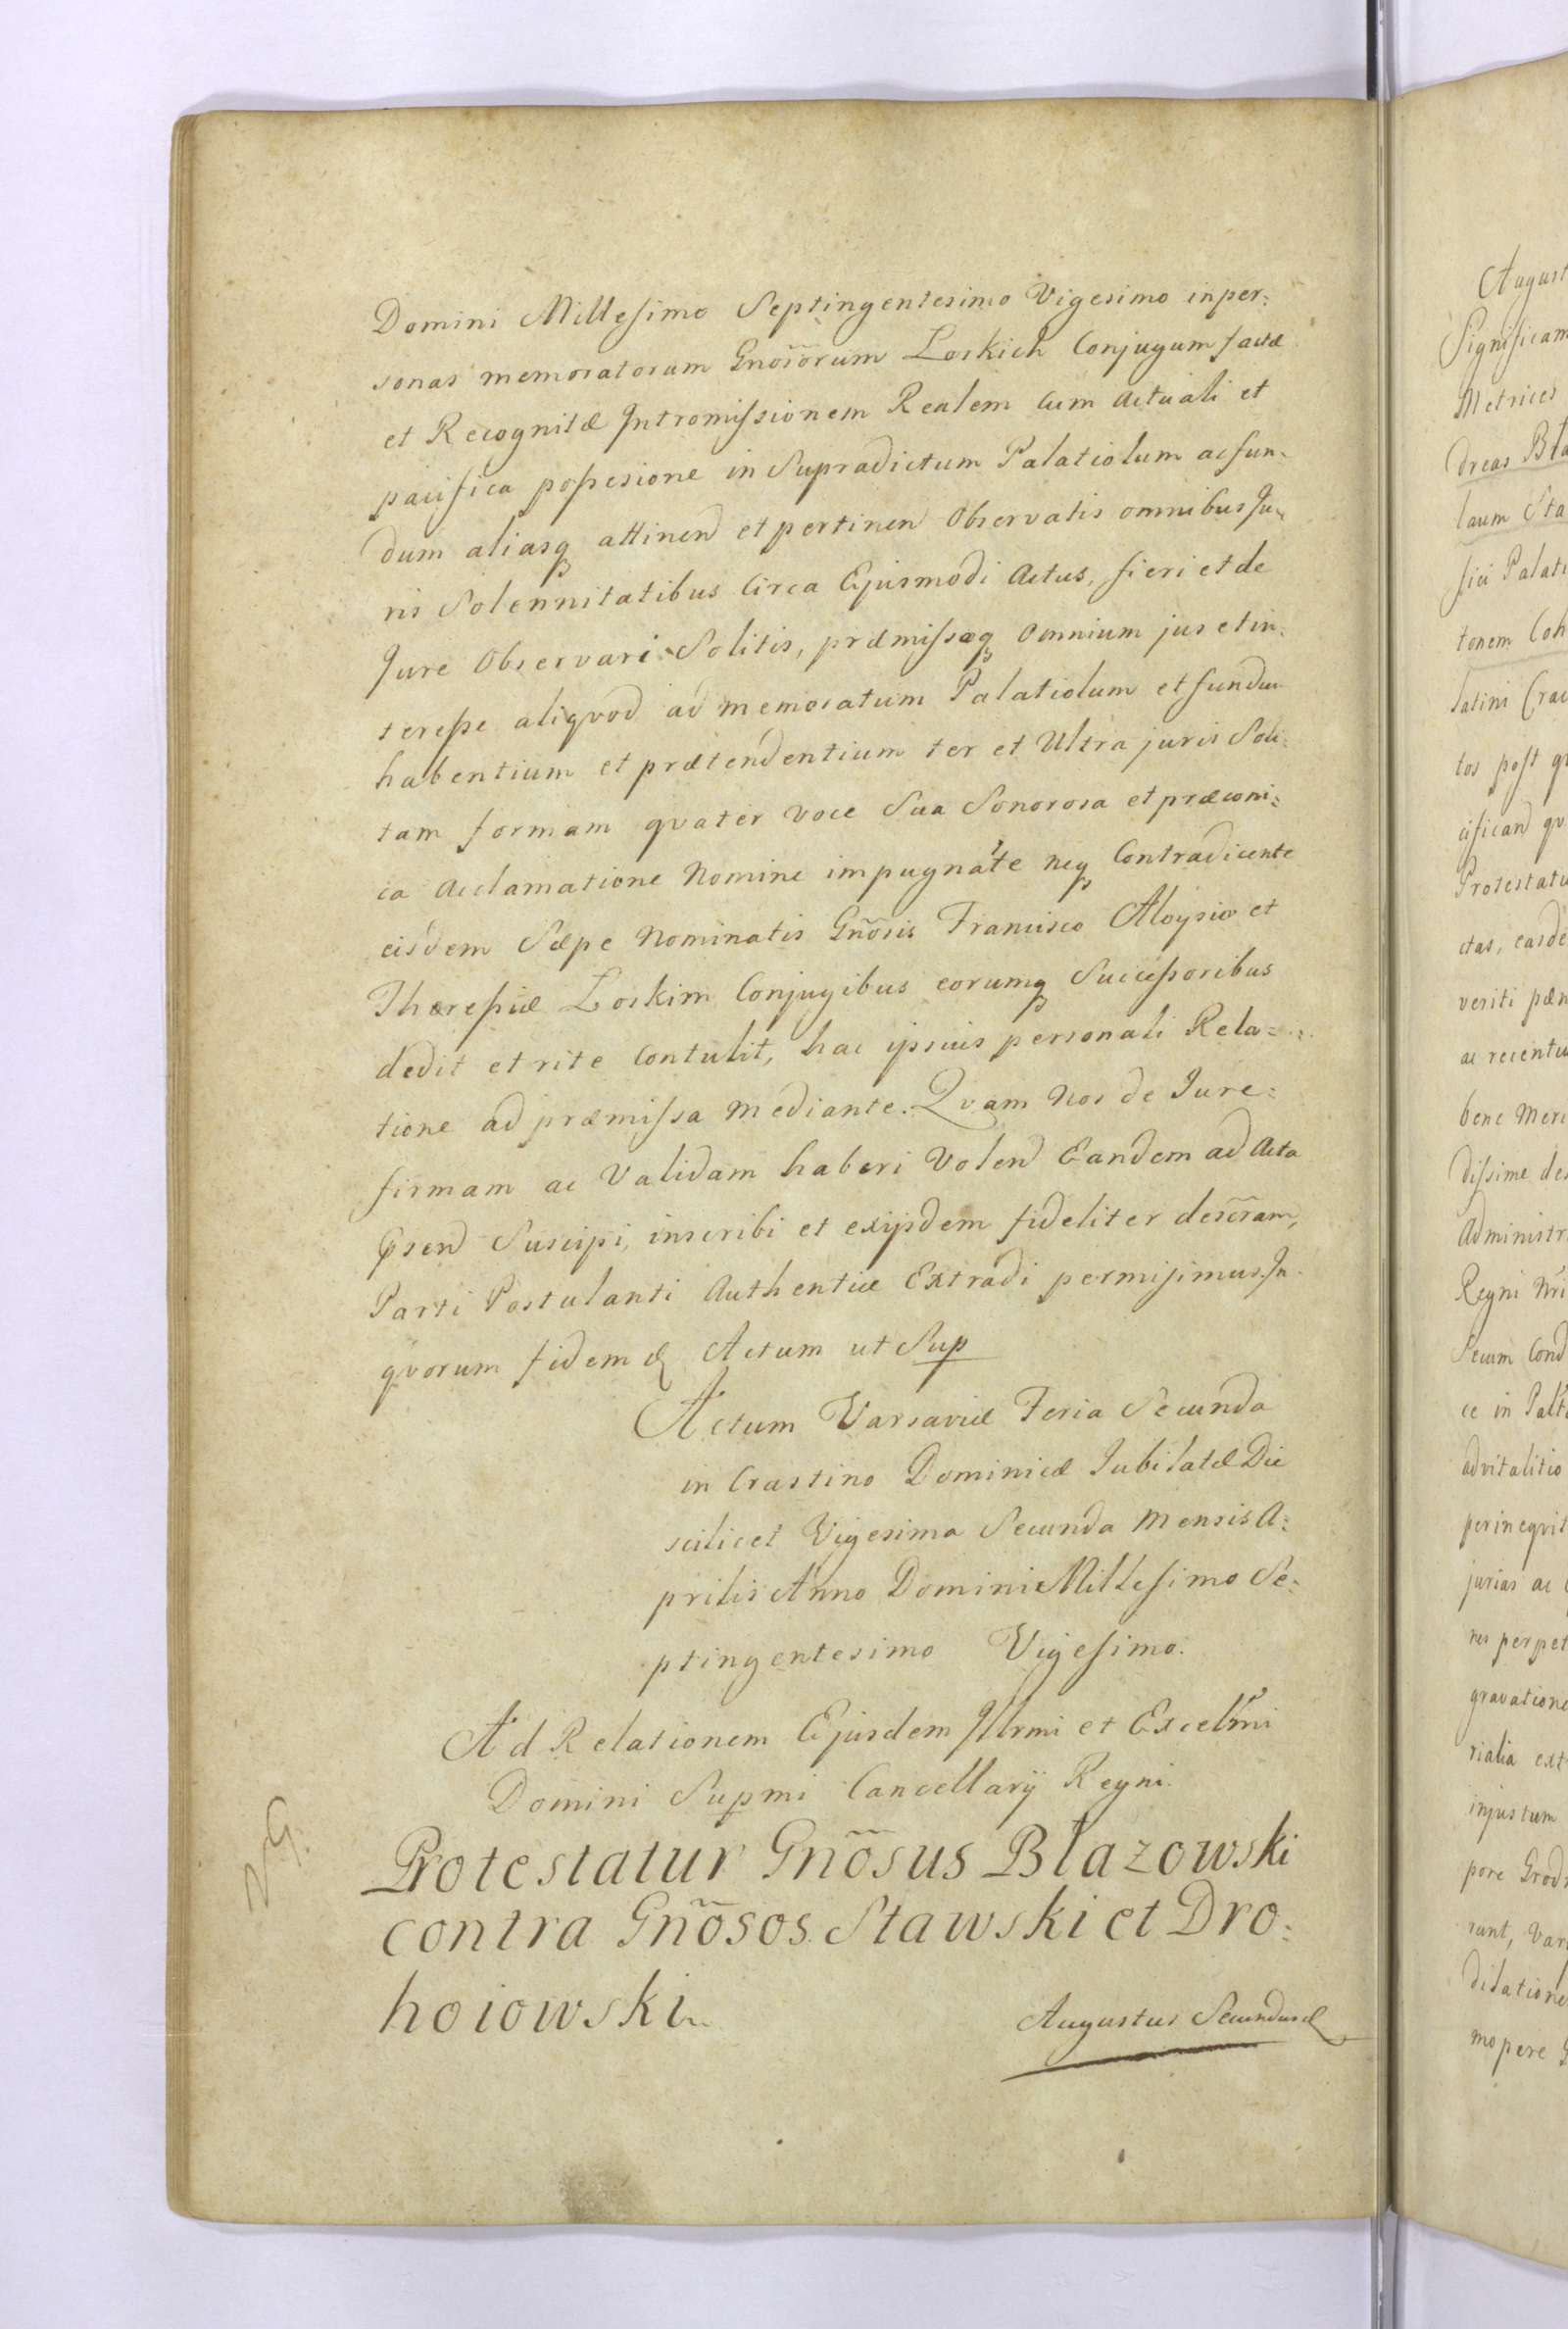 Domini Millesimo Septingentesimo Vigesimo in per:
sonas memoratorum Gnororum Loskich Conjugum factæ
et Recognitæ Intromissionem Realem cum actuali et
pacifica possesione in Supradictum Palatiolum ac fun-
dum aliasq attinend et pertinend Observatis omnibus Ju-
ris Solennitatibus Circa Ejusmodi Actus, fieri et de
Jure Observari Solitis, præmissaq Omnium jus et in:
teresse aliqvod ad memoratum Palatiolum et fundum
habentium et prætendentium ter et Ultra juris Soli:
tam formam qvater voce Sua Sonorosa et præconi:
ca acclamatione Nomine impugnate neq Contradicente
eisdem Sæpe Nominatis Gnosis Francisco Aloysio et
Theressiæ Loskim Conjugibus eorumq Successoribus
dedit et rite Contulit, hac ipsius personali Rela=
tione ad præmissa mediante. Qvam Nos de Jure:
firmam ac Validam haberi Volend Eandem ad Acta
Psend Suscipi, inscribi et exijsdem fideliter descram,
Parti Postulanti Authentice Extradi permisimus. In
qvorum fidem & Actum ut Sup
Actum Varsaviæ Feria Secunda
in Crastino Dominicæ Jubilatæ Die
scilicet Vigesima Secunda Mensis A:
prilis Anno Domini Millesimo Se:
ptingentesimo Vigesimo.
Ad Relationem Ejusdem Illrmi et Excellmi
Domini Supmi Cancellarij Regni.
Protestatur Gnõsus Błazowski
contra Gnõsos Stawski et Dro:
hoiowski
Augustus Secundus &
August
Significam
Metrices
dreas Bła
laum Sta
sici Palati
tonem Coh
latini Crac
tos post q
cificand qv
Protestatu
ctas, easde
veriti pæn
ac recentu
bene Meri
dissime des
Administr
Regni Nri
Secum Cond
ce in Palt
advitalitio
per ineqvit
jurias ac
nes perpet
gravatione
rialia ext
injustum
pore Grodn
runt, Var
dilatione
mopere